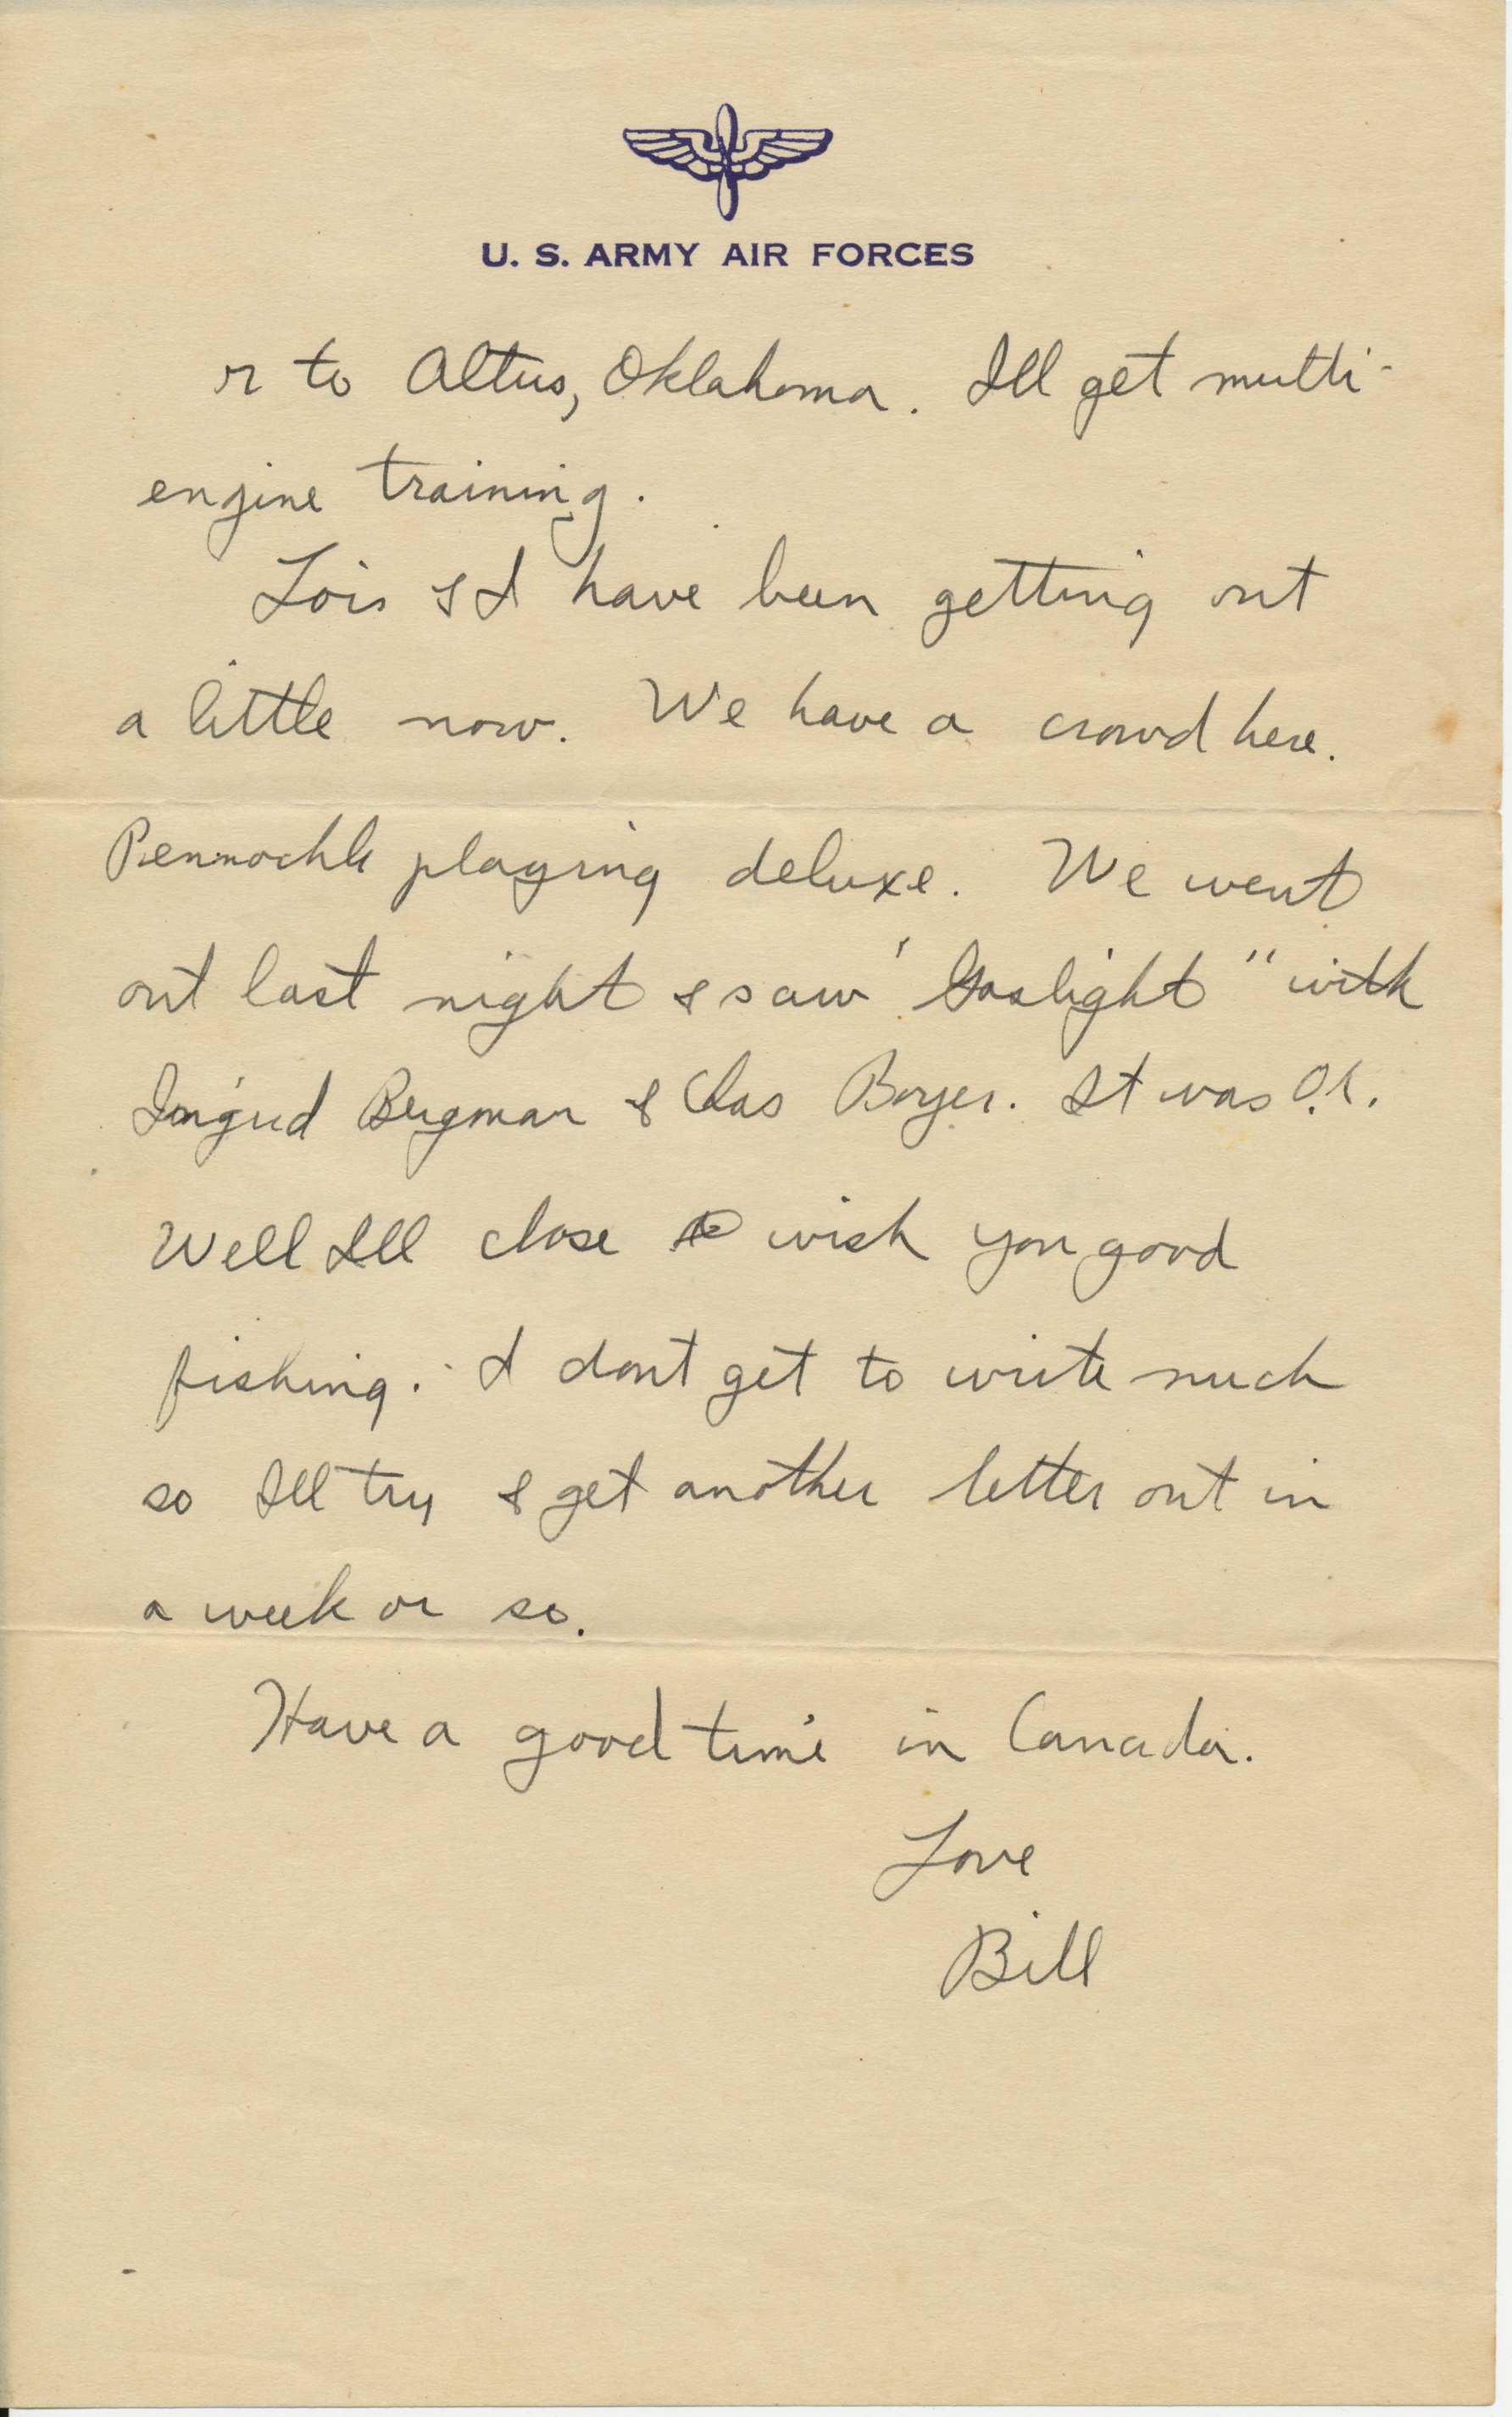 U. S. ARMY AIR FORCES
r to Altus, Oklahoma. Ill get multi-
engine training.
Lois & I have been getting out
a little now. We have a crowd here.
playing deluxe. We went
out last night & saw "Gaslight" with
Ingrid Bergman & Chas Boyer. It was O.K.
Well Ill close & wish you good
fishing. I dont get to write much
so Ill try & get another letter out in
a week or so.
Have a good time in Canada.
Love
Bill